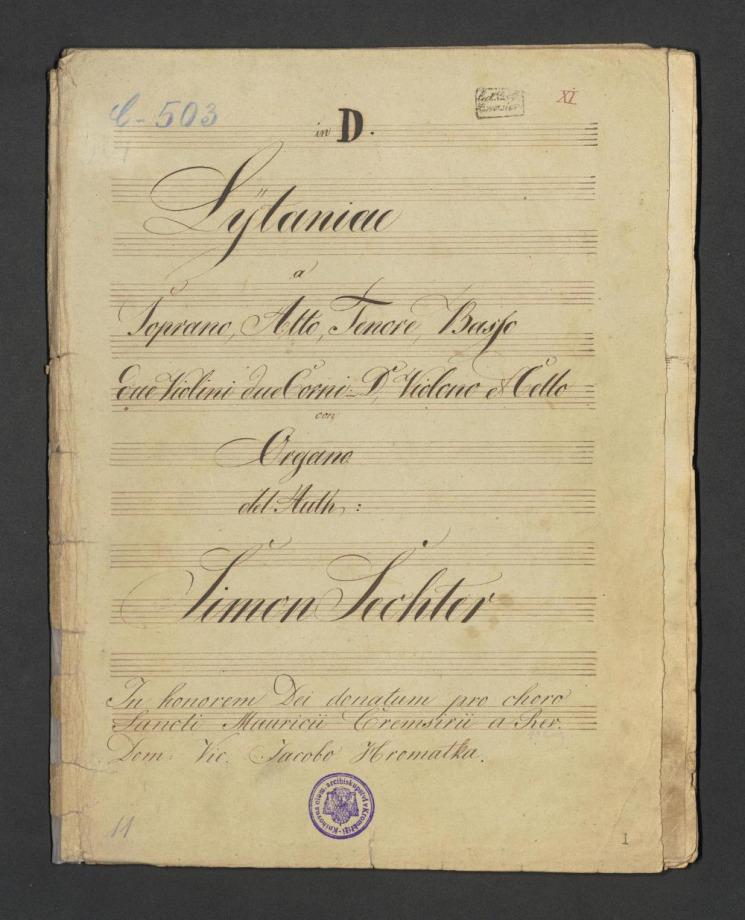 C-503
XI
in D.
Lÿtaniae
a
Soprano, Alto, Tenore, Basso
due Violini due Corni D, Violono et Cello
con
Organo
del Auth:
Simon Sechter
In honorem Dei donatum pro choro
Sancti Mauricii Cremsirii a Rev.
Dom. Vic. Jacobo Hromatka.
Knihovna olom. arcibiskupství v Kroměříži
11
1